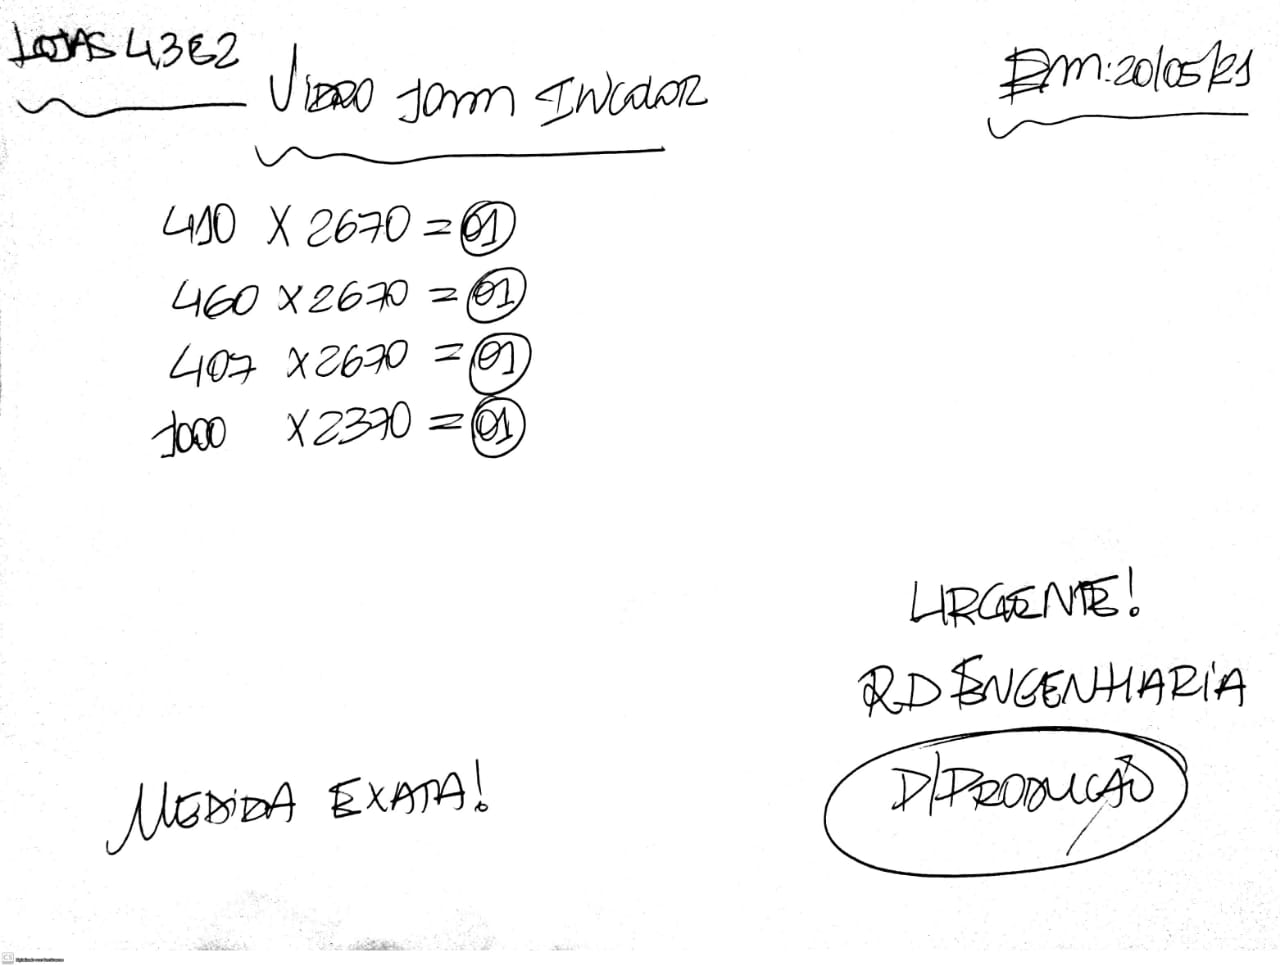 LOJAS 4,3E2
VIDRO 10mm INCOLOR
Em: 20/05/21
410 X 2670 = 01
460 X 2670 = 01
407 X 2670 = 01
1000 X 2370 = 01
URGENTE!
RD ENGENHARIA
MEDIDA EXATA!
P/PRODUÇÃO
CS